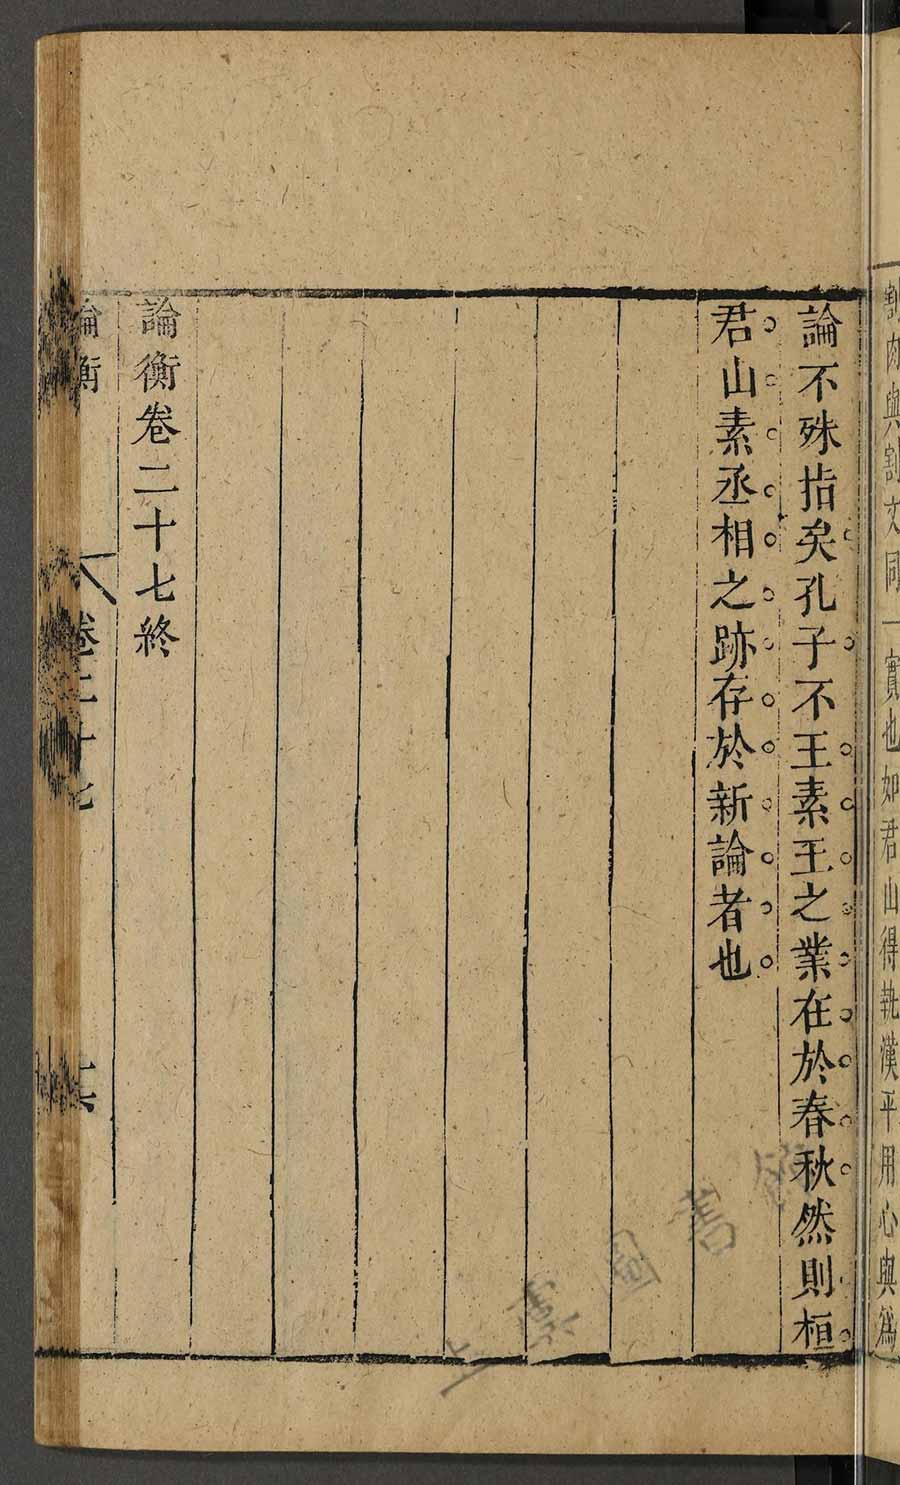 割肉與割文同一實也如君山得執漢平用心與爲
論不殊指矣孔子不王素王之業在於春秋然則桓
君山素丞相之跡存於新論者也
論衡卷二十七終
論衡
卷二十七
上虞圖書館